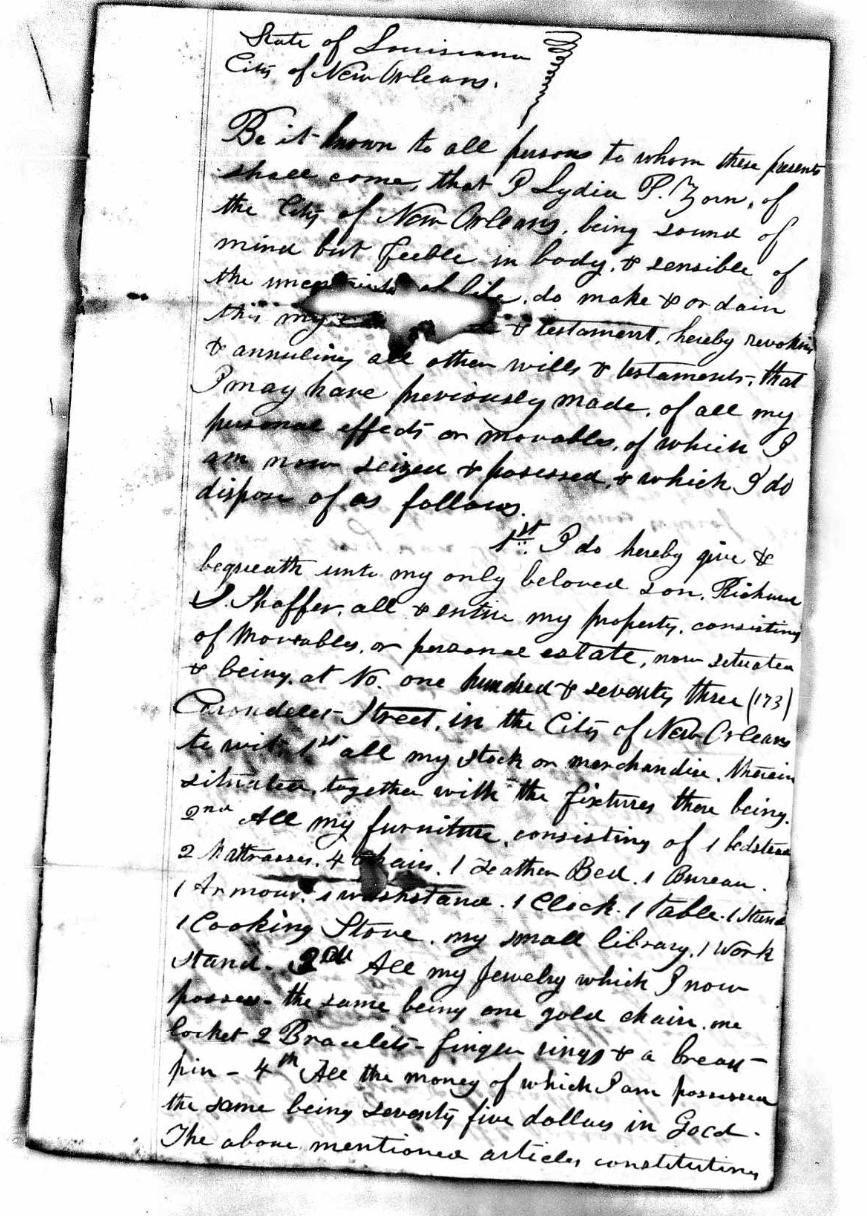 State of Louisiana
City of New Orleans.
Be it known to all persons to whom these presents
shall come, that I Lydia P. Zorn, of
the City of New Orleans, being sound of
mind but feeble in body, & sensible of
the of life, do make & ordain
this my & testament, hereby revoking
& annuling all other wills & testaments, that
I may have previously made, of all my
personal effects or movables, of which I
am now seized & posessed, & which I do
dispose of as follows.
1st I do hereby give &
bequeath unto my only beloved son, Richard
S. Shaffer, all & entire my property, consisting
of Movables, or personal estate, now situated
& being, at No. one hundred & seventy three (173)
Carondelet Street, in the City of New Orleans
to wit: 1st all my stock or merchandise, therein
situated, together with the fixtures there being.
2nd All my furniture, consisting of 1 bedstead
2 Mattrasses. 4 Chairs. 1 Feather Bed. 1 Bureau.
1 Armour. 1 washstand. 1 Clock. 1 table. 1 Stand
1 Cooking Stove. my small library. 1 Work
stand. 3rd All my Jewelry which I now
posses- the same being one gold chain. one
locket 2 Bracelets- finger rings & a breast
pin - 4th All the money of which I am possessed
the same being seventy five dollars in Gold-
The above mentioned articles constituting